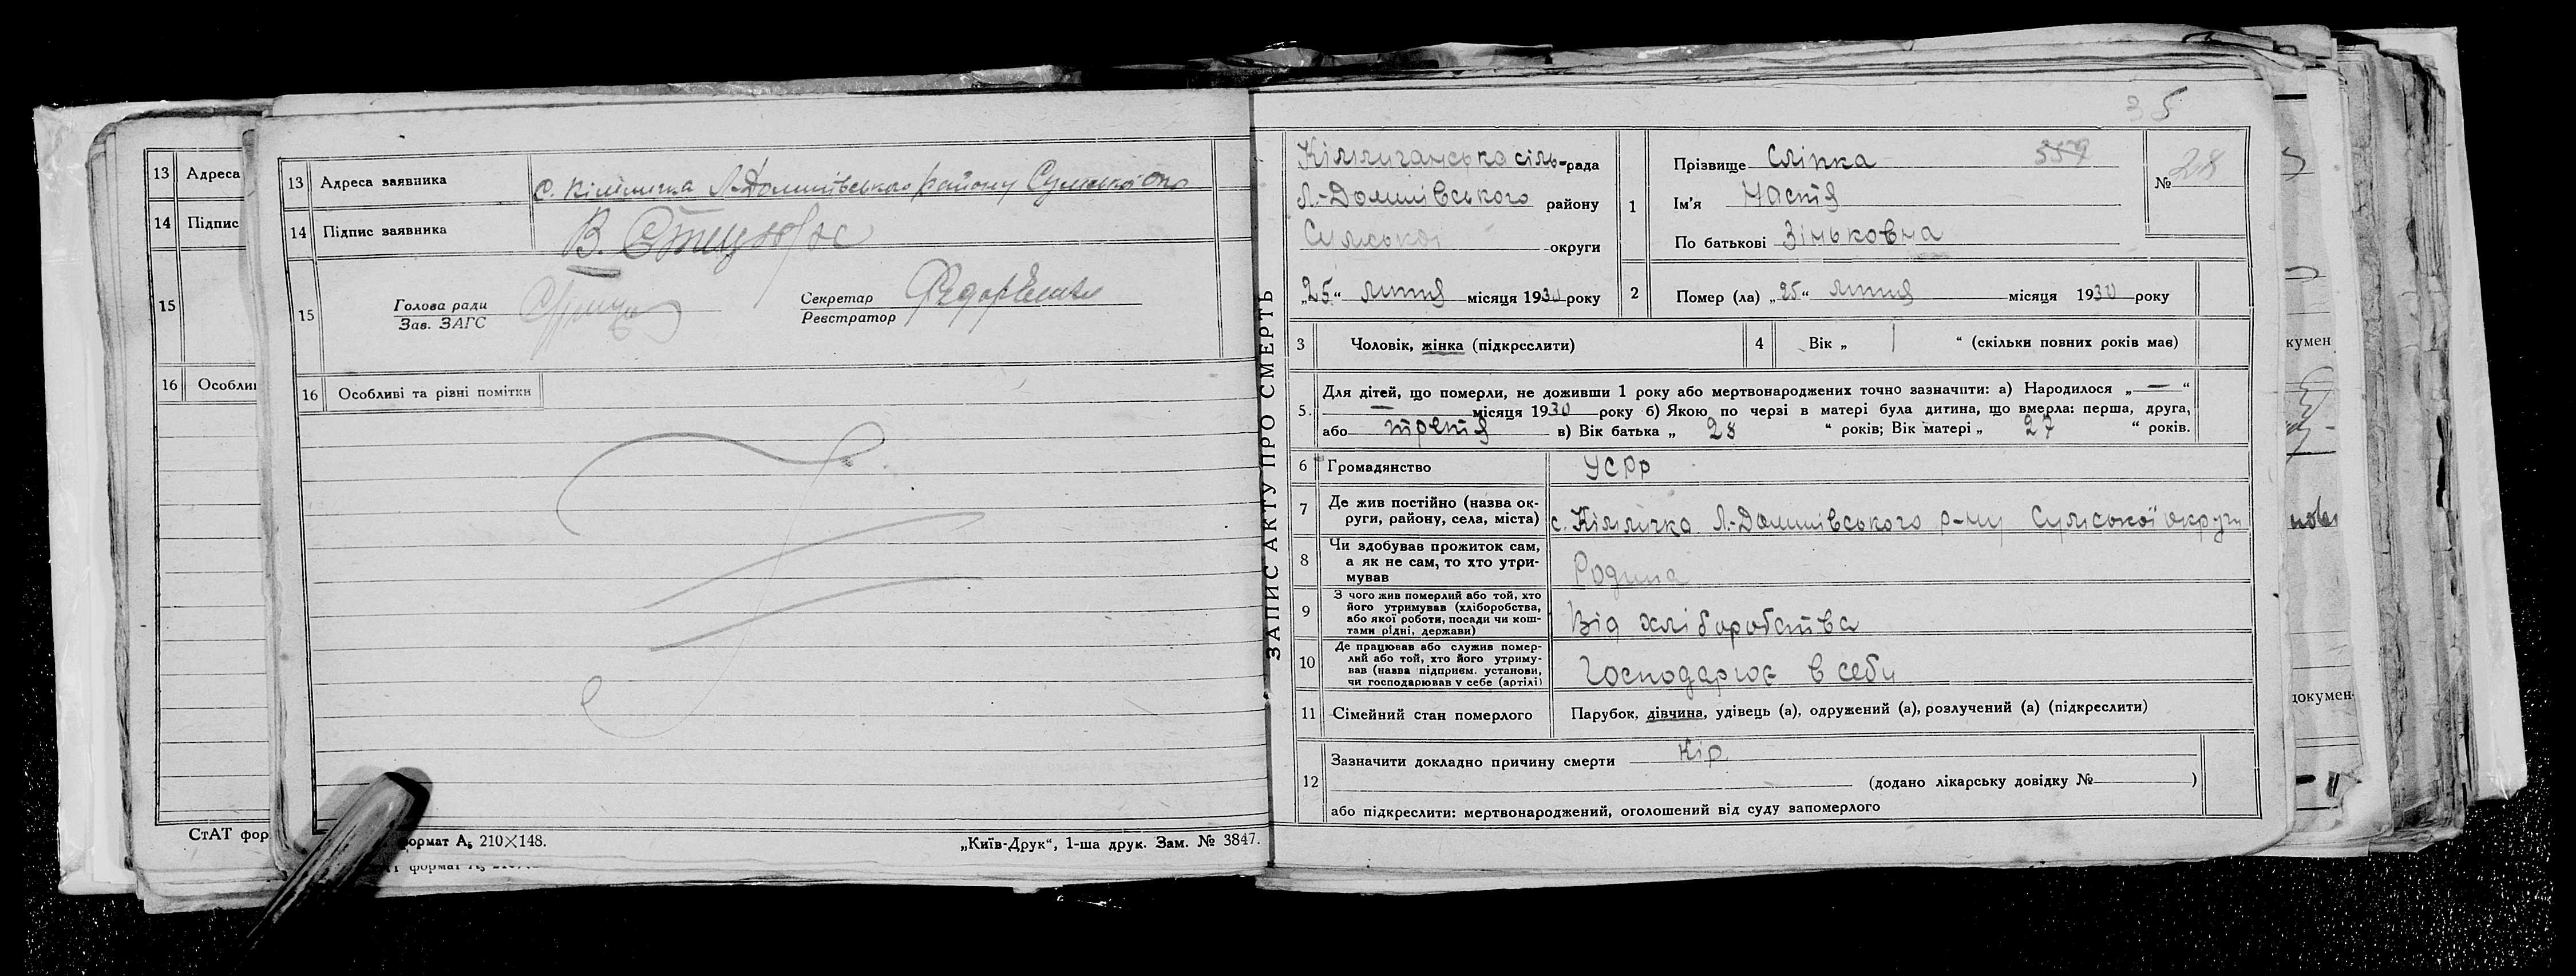 13 Адреса
14 Підпис
15
16 Особли
СтАТ фор
13 Адреса заявника с. Кімличка Л-Долинського району Сумської окр
14 Підпис заявника В.
15 Голова ради
Зав. ЗАГС
Секретар
Реєстратор Федорченко
16 Особливі та різні помітки
формат А₅ 210×148.
„Київ-Друк“, 1-ша друк. Зам. № 3847.
формат
ЗАПИС АКТУ ПРО СМЕРТЬ
35
сіль-рада
Л.-Долинського району
Сумської округи
„25“ липня місяця 1930 року
1 Прізвище Сліпка 557
Ім'я Настя
По батькові Зіньковна
№ 28
2 Помер (ла) „25“ липня місяця 1930 року
3 Чоловік, жінка (підкреслити)
4 Вік „ 1 “ (скільки повних років мав)
5. Для дітей, що померли, не доживши 1 року або мертвонароджених точно зазначити: а) Народилося „—“
— місяця 1930 року б) Якою по черзі в матері була дитина, що вмерла: перша, друга,
або третя в) Вік батька „ 28 “ років; Вік матері „ 27 “ років.
6 Громадянство УСРР
7 Де жив постійно (назва ок-
руги, району, села, міста) с. Кімличка Л.-Долинського р-ну Сумської округи
8 Чи здобував прожиток сам,
а як не сам, то хто утри-
мував Родина
9 З чого жив померлий або той, хто
його утримував (хліборобства,
або якої роботи, посади чи кош-
тами рідні, держави) Від хліборобства
10 Де працював або служив помер-
лий або той, хто його утриму-
вав (назва підприєм. установи,
чи господарював у себе (артілі) Господарює в себи
11 Сімейний стан померлого Парубок, дівчина, удівець (а), одружений (а), розлучений (а) (підкреслити)
12 Зазначити докладно причину смерти Кір
(додано лікарську довідку № )
або підкреслити: мертвонароджений, оголошений від суду запомерлого
кумен
докумен-